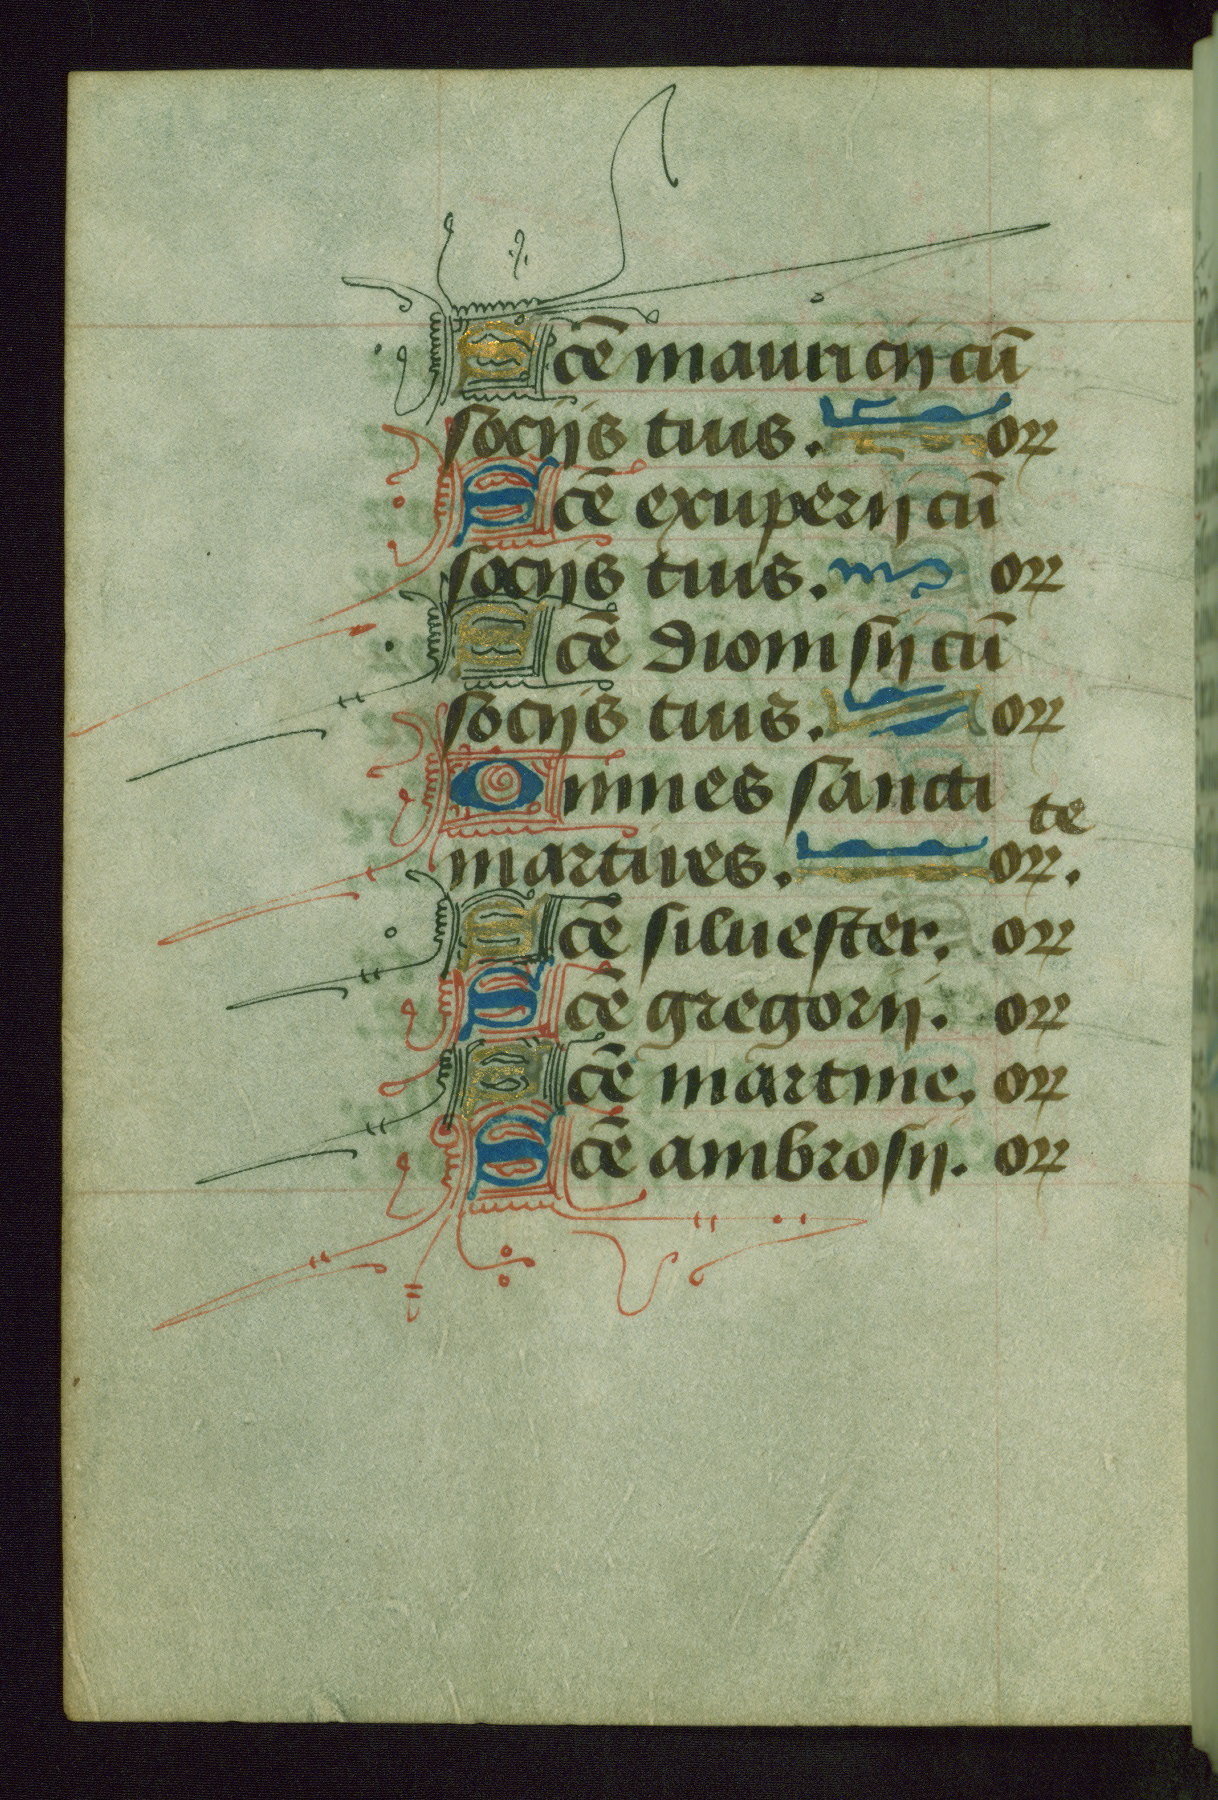 Scē mauricij cū
socijs tuis. orꝝ
Scē exuperij cū
socijs tuis. orꝝ
Scē dionisij cū
socijs tuis. orꝝ
Omnes sancti
martires. orꝝ. te
Scē siluester. orꝝ
Scē gregorij. orꝝ
Scē martine. orꝝ
Scē ambrosij. orꝝ